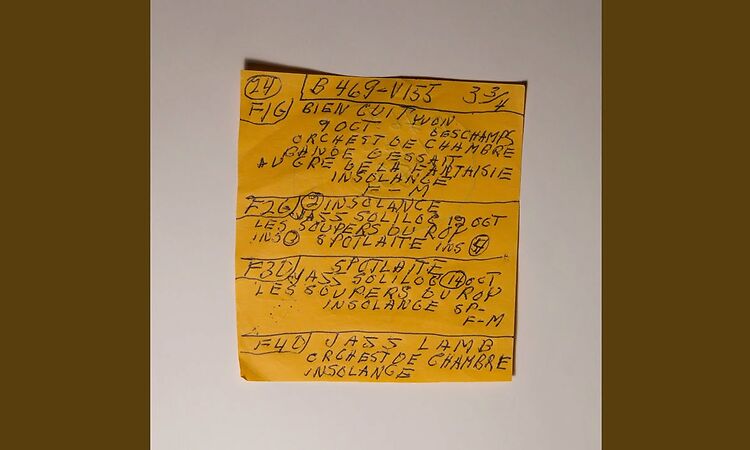 14 B 469-V155 3 3/4
F1G BIEN CUIT YVON
9 OCT DESCHAMPS
ORCHEST DE CHAMBRE
BANDE DESSAIT
AU GRE DE LA FANTAISIE
INSOLANGE
F-M
F2G 2 INSOLANCE
JASS SOLILOG 19 OCT
LES SOUPERS DU ROY
INS SPOTLAITE INS
F3D SPOTLAITE
JASS SOLILOG 14 OCT
LES SOUPERS DU ROY
INSOLANGE SP-
F-M
F4D JASS LAMB
ORCHEST DE CHAMBRE
INSOLANGE